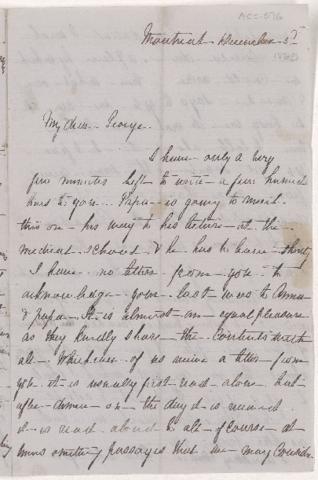 ACC-576
Montreal December 5th
My dear George
I have only a very
few minutes left to write a few hurried
lines to you. Papa is going to mail
this on his way to his lecture at the
medical school & he has to leave shortly
I have no letter from you to
acknowledge your last were to Anna
& papa. It is almost an equal pleasure
as they kindly share the contents with
all. Whichever of us receive a letter from
you it is usually first read alone but
after dinner on the day it is received
it is read aloud to all of course at
times omitting passages that we may consider